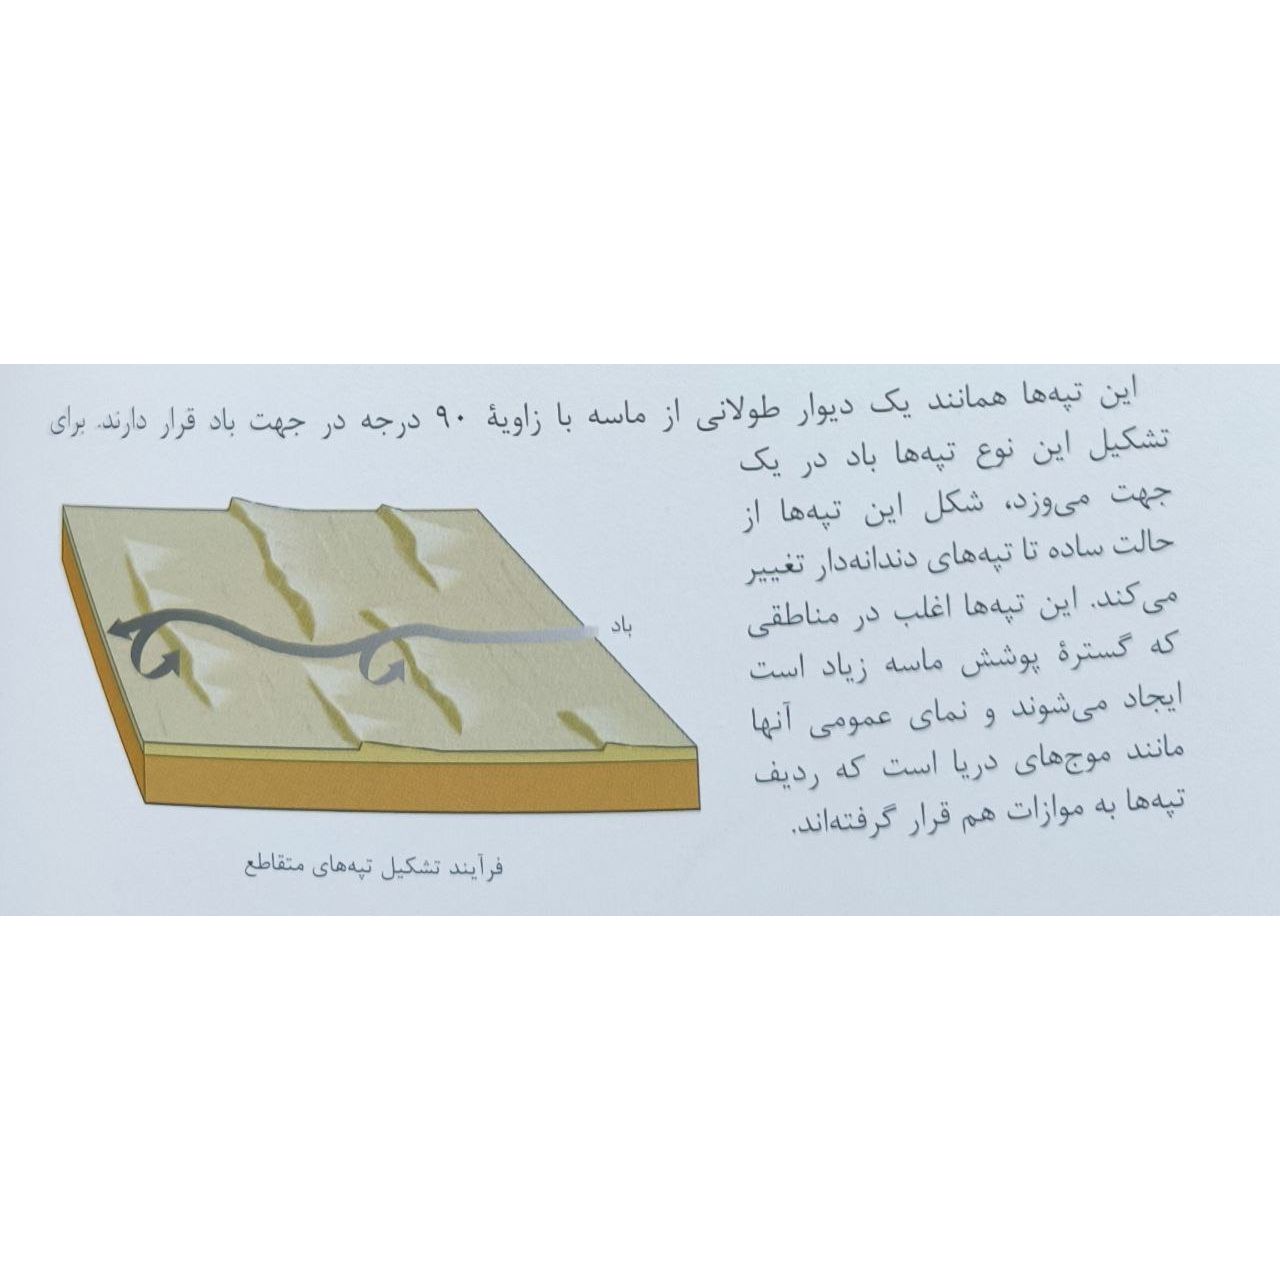 این تپه‌ها همانند یک دیوار طولانی از ماسه با زاویهٔ ۹۰ درجه در جهت باد قرار دارند. برای
تشکیل این نوع تپه‌ها باد در یک
جهت می‌وزد، شکل این تپه‌ها از
حالت ساده تا تپه‌های دندانه‌دار تغییر
می‌کند. این تپه‌ها اغلب در مناطقی
که گسترهٔ پوشش ماسه زیاد است
ایجاد می‌شوند و نمای عمومی آنها
مانند موج‌های دریا است که ردیف
تپه‌ها به موازات هم قرار گرفته‌اند.
باد
فرآیند تشکیل تپه‌های متقاطع